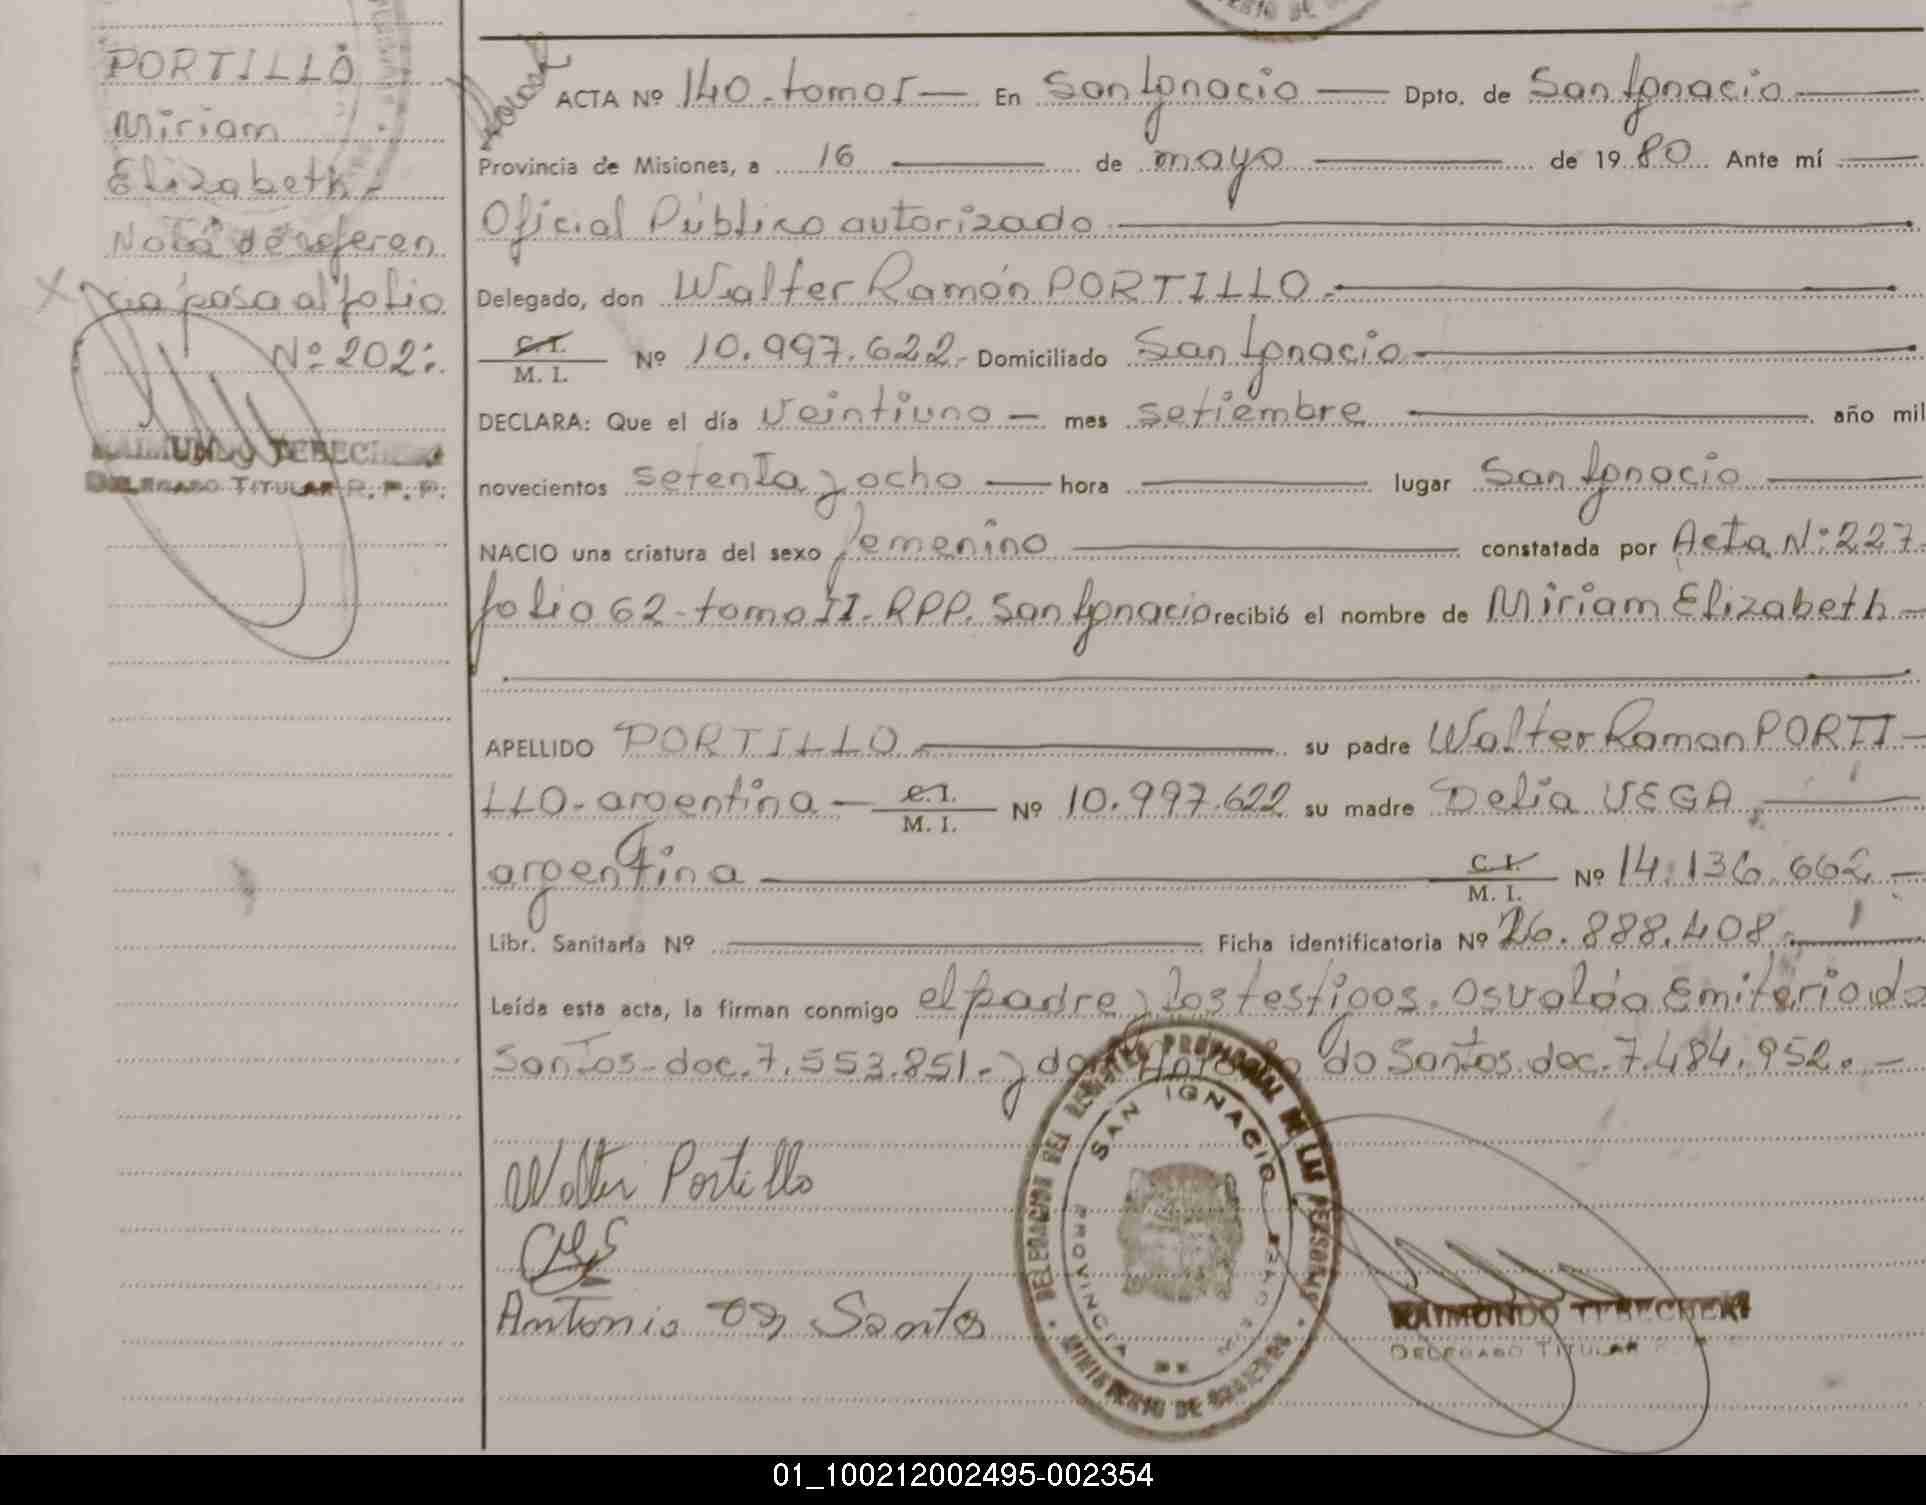 PORTILLO
Miriam
Elizabeth-
Nota de referen
cia pasa al folio
Nº 202:
RAIMUNDO TEBECHERI
DELEGADO TITULAR R. P. P.
ACTA Nº 140-tomo I — En San Ignacio — Dpto. de San Ignacio —
Provincia de Misiones, a 16 — de mayo — de 1980 Ante mí —
Oficial Público autorizado —
Delegado, don Walter Ramón PORTILLO.—
C.I.
M. I. Nº 10.997.622- Domiciliado San Ignacio —
DECLARA: Que el día veintiuno — mes setiembre — año mil
novecientos setenta y ocho — hora — lugar San Ignacio —
NACIO una criatura del sexo femenino — constatada por Acta Nº 227-
folio 62-tomo II- RPP. San Ignacio recibió el nombre de Miriam Elizabeth —
APELLIDO PORTILLO — su padre Walter Ramon PORTI-
LLO- argentina — C.I.
M. I. Nº 10.997.622 su madre Delia VEGA —
argentina — C. I.
M. I. Nº 14.136.662 —
Libr. Sanitaria Nº — Ficha identificatoria Nº 26.888.408 —
Leída esta acta, la firman conmigo el padre y los testigos. Osvaldo Emiterio do
Santos- doc. 7.553.851.- y don Antonio do Santos doc. 7.484.952. —
Walter Portillo
Antonio Santos
DELEGACION DEL REGISTRO PROVINCIAL DE LAS PERSONAS
SAN IGNACIO
PROVINCIA DE MISIONES
MINISTERIO DE GOBIERNO
RAIMUNDO TEBECHERI
DELEGADO TITULAR
01_100212002495-002354